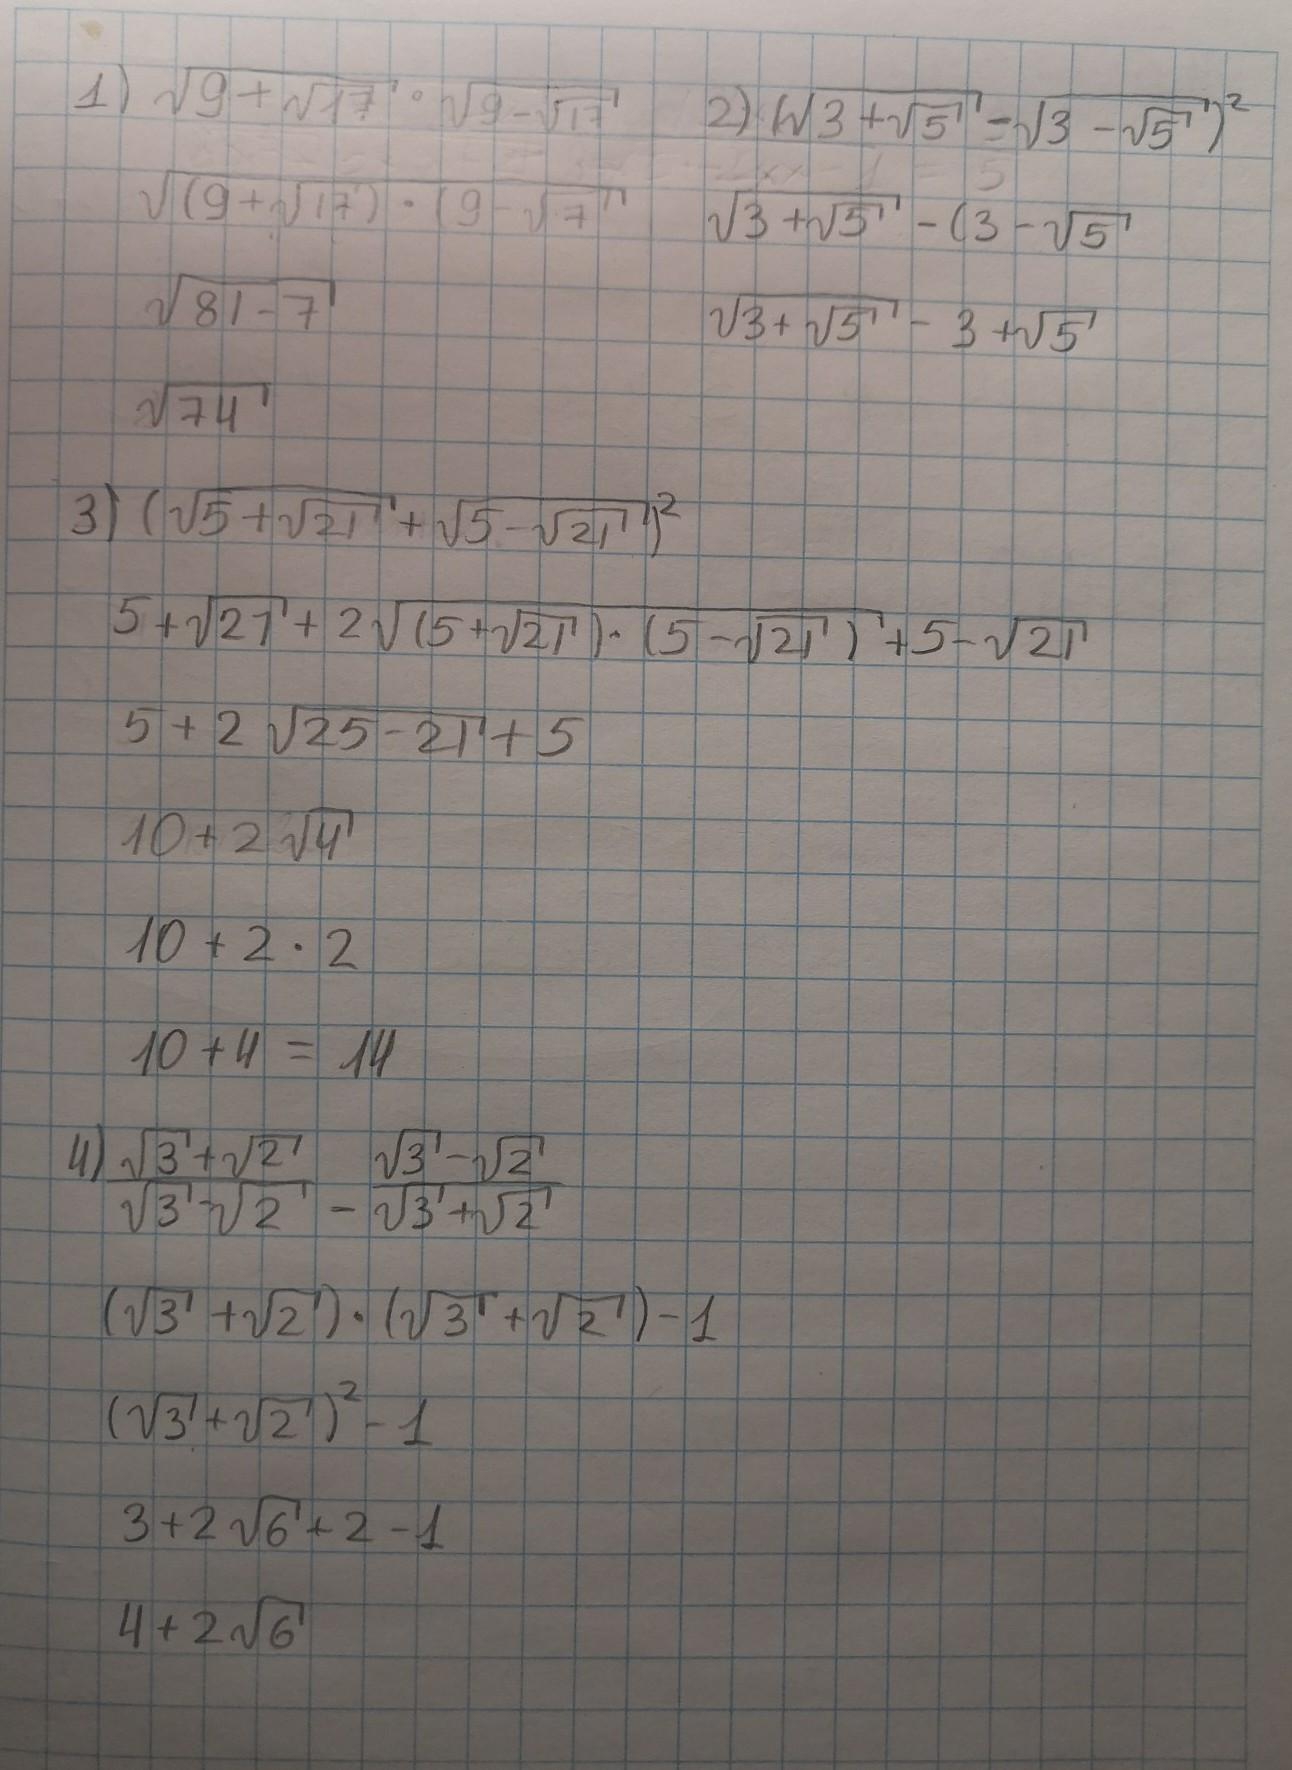 1) √(9+√17) · √(9-√17)
√((9+√17) · (9-√7))
√(81-7)
√74
2) (√(3+√5) - √(3-√5))²
√(3+√5) - (3-√5
√(3+√5) - 3+√5
3) (√(5+√21) + √(5-√21))²
5+√21 + 2√((5+√21) · (5-√21)) + 5-√21
5 + 2√(25-21) + 5
10 + 2√4
10 + 2 · 2
10 + 4 = 14
4) (√3+√2)/(√3-√2) - (√3-√2)/(√3+√2)
(√3+√2) · (√3+√2) - 1
(√3+√2)² - 1
3+2√6+2-1
4+2√6